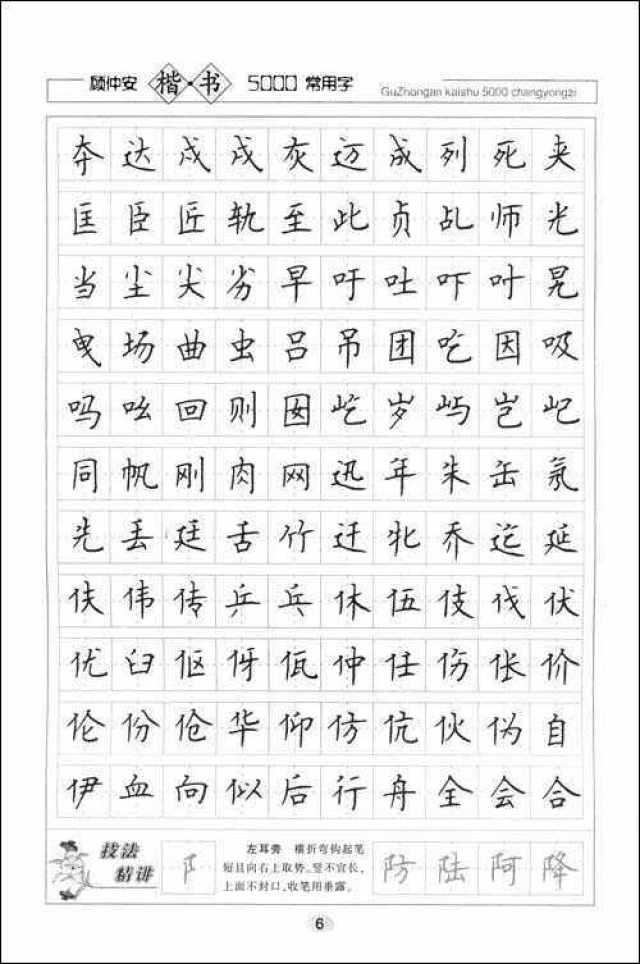 顾仲安 楷·书 5000 常用字 GuZhongan kaishu 5000 changyongzi
夺 达 戍 戌 灰 迈 成 列 死 夹
匡 臣 匠 轨 至 此 贞 乩 师 光
当 尘 尖 劣 早 吁 吐 吓 叶 旯
曳 场 曲 虫 吕 吊 团 吃 因 吸
吗 吆 回 则 囡 屹 岁 屿 岂 屺
同 帆 刚 肉 网 迅 年 朱 缶 氖
先 丢 廷 舌 竹 迁 牝 乔 迄 延
伕 伟 传 乒 乓 休 伍 伎 伐 伏
优 臼 伛 伢 佤 仲 任 伤 伥 价
伦 份 伧 华 仰 仿 伉 伙 伪 自
伊 血 向 似 后 行 舟 全 会 合
技法
精讲
阝
左耳旁 横折弯钩起笔
短且向右上取势。竖不宜长，
上面不封口，收笔用垂露。
防 陆 阿 降
6